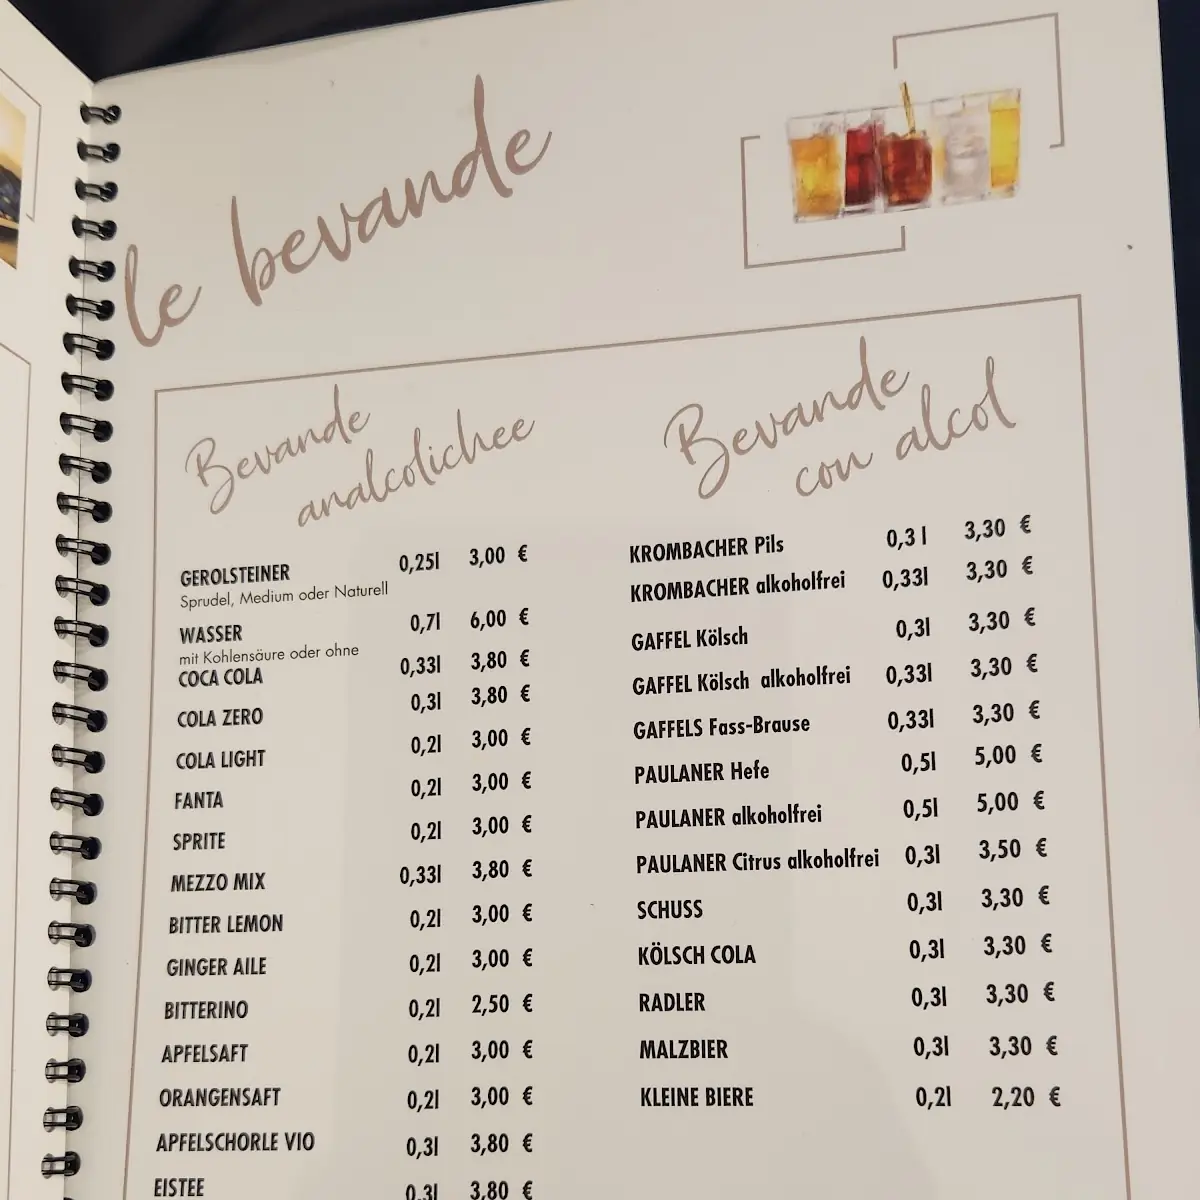 le bevande
Bevande
analcolichee
GEROLSTEINER 0,25l 3,00 €
Sprudel, Medium oder Naturell
WASSER 0,7l 6,00 €
mit Kohlensäure oder ohne
COCA COLA 0,33l 3,80 €
COLA ZERO 0,3l 3,80 €
COLA LIGHT 0,2l 3,00 €
FANTA 0,2l 3,00 €
SPRITE 0,2l 3,00 €
MEZZO MIX 0,33l 3,80 €
BITTER LEMON 0,2l 3,00 €
GINGER AILE 0,2l 3,00 €
BITTERINO 0,2l 2,50 €
APFELSAFT 0,2l 3,00 €
ORANGENSAFT 0,2l 3,00 €
APFELSCHORLE VIO 0,3l 3,80 €
EISTEE 0,3l 3,80 €
Bevande
con alcol
KROMBACHER Pils 0,3 l 3,30 €
KROMBACHER alkoholfrei 0,33l 3,30 €
GAFFEL Kölsch 0,3l 3,30 €
GAFFEL Kölsch alkoholfrei 0,33l 3,30 €
GAFFELS Fass-Brause 0,33l 3,30 €
PAULANER Hefe 0,5l 5,00 €
PAULANER alkoholfrei 0,5l 5,00 €
PAULANER Citrus alkoholfrei 0,3l 3,50 €
SCHUSS 0,3l 3,30 €
KÖLSCH COLA 0,3l 3,30 €
RADLER 0,3l 3,30 €
MALZBIER 0,3l 3,30 €
KLEINE BIERE 0,2l 2,20 €